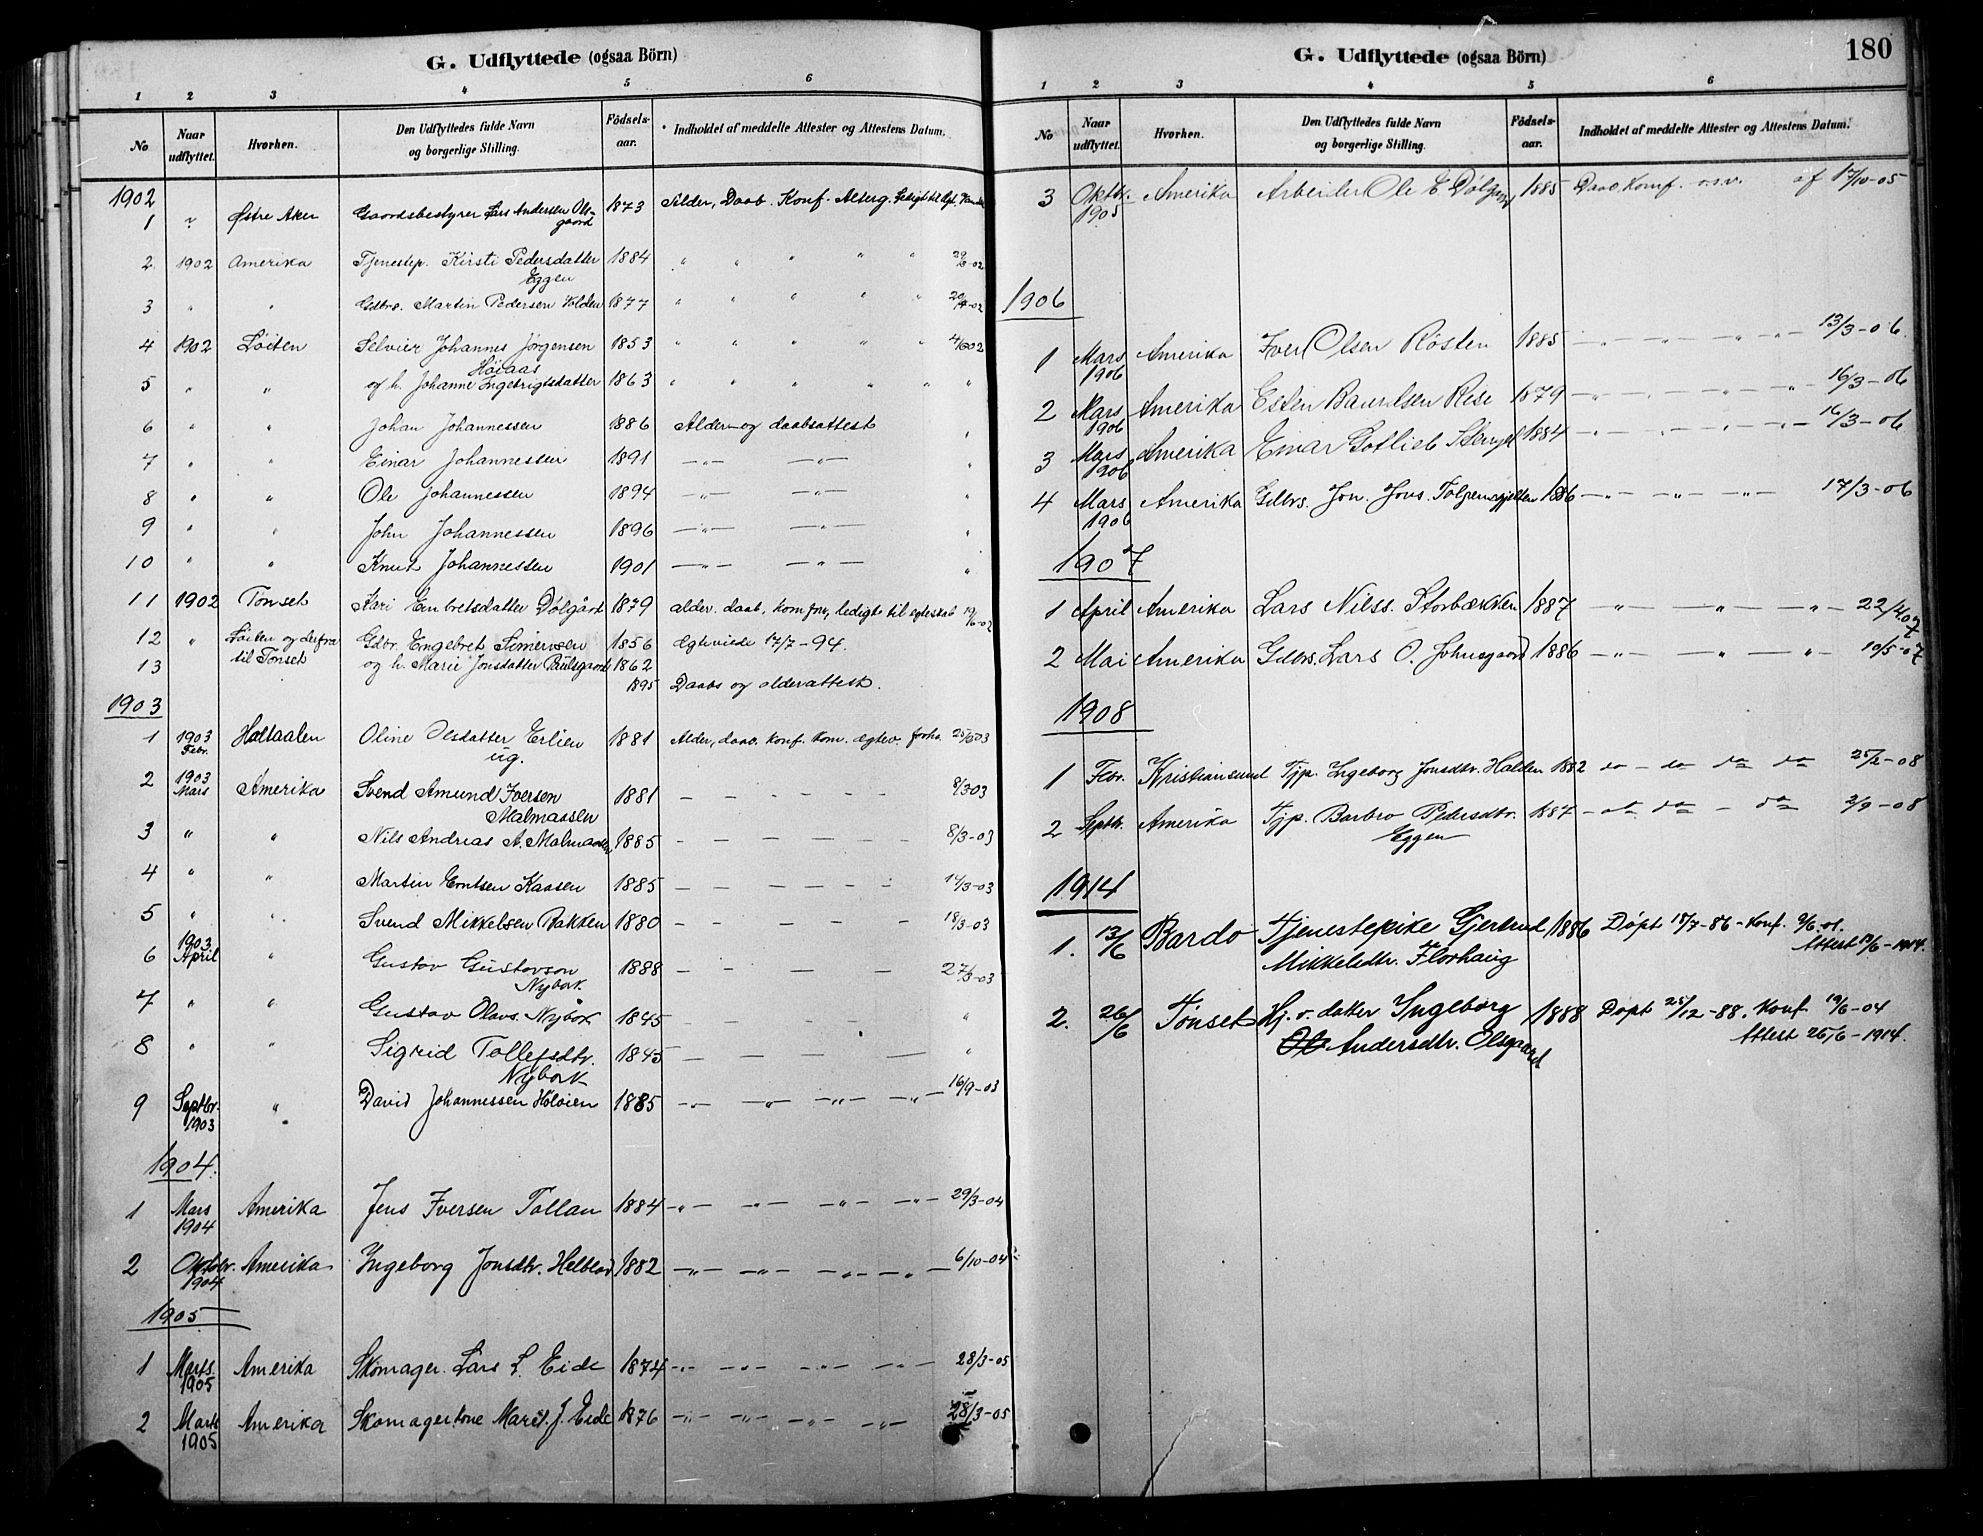 G. Udflyttede (ogsaa Börn)
1 2 3 4 5 6
No Naar udflyttet. Hvorhen. Den Udflyttedes fulde Navn og borgerlige Stilling. Fødsels-aar. Indholdet af meddelte Attester og Attestens Datum.
1902
1 " Østre Aker Gaardsbestyrer Lars Andersen Ols-gaard 1873 Alder, Daab. Konf. Alterg. Ledigt til Egt.
2 1902 Amerika Tjenestep. Kirsti Pedersdatter Eggen 1884 " " " " "
3 " " Gdbrs. Martin Pedersen Volden 1877 " " " " "
4 1902 Løiten Selveier Johannes Jörgensen Höiaas 1853 " " " " "
5 " " og h. Johanne Ingebrigtsdatter 1863 " " " " " "
6 " " Johan Johannessen 1886 Alder- og daabsattest "
7 " " Einar Johannessen 1891 —"— —"— "
8 " " Ole Johannessen 1894 —"— —"— "
9 " " John Johannessen 1896 —"— —"— "
10 " " Knut Johannessen 1901 —"— —"— "
11 1902 Tønset Kari Embretsdatter Dølgård 1879 alder. daab, komfn, ledigt til egteskab
12 " Løiten og derfra Gdbr. Engebret Simensen 1856 Egteviede 17/7-94.
13 til Tønset og h. Marie Jonsdatter 1862
1895 Daabs og aldersattest.
1903
1 1903 Febr. Holtaalen Oline Olsdatter Erlien ug. 1881 Alder, daab. konf. kom. egtev. forho.
2 1903 Mars Amerika Svend Amund Iversen Malmaasen 1881 — — — — — 8/3-03
3 " " Nils Andreas A. Malmaasen 1885 — — — — — 8/3-03
4 " " Martin Erntsen Kaasen 1885 — — — — —
5 " " Svend Mikkelsen Bakken 1880 — — — — 18/3-03
6 1903 April " Gustav Gustavson Nybork 1888 — — — —
7 " " Gustav Olavs. Nybork 1845 — — — — "
8 " " Sigrid Tollefsdtr. Nybork 1845 — — — — "
9 Septbr. 1903 " David Johannessen Holøien 1885 —"— —"— —"— —"— 16/9-03
1904.
1 Mars 1904 Amerika Jens Iversen Tollan 1884 —"— —"— —"— —"— 29/3-04
2 Oktobr. 1904 Amerika Ingeborg Jonsdtr. 1882 —"— —"— —"— —"— 6/10-04
1905
1 Marts. 1905 Amerika Skomager. Lars L. Eide 1874 —"— —"— —"— —"— 28/3-05
2 Marts 1905 Amerika Skomagerkone Marit. J. Eide 1876 —"— —"— —"— —"— 28/3-05
G. Udflyttede (ogsaa Börn)
180
1 2 3 4 5 6
No Naar udflyttet. Hvorhen. Den Udflyttedes fulde Navn og borgerlige Stilling. Fødsels-aar. Indholdet af meddelte Attester og Attestens Datum.
3 Oktbr. 1905 Amerika Arbeider Ole E. 1885 Daab. Komf. o.s.v. af 17/10-05
1906
1 Mars 1906 Amerika Iver Olsen Røsten 1885 —"— —"— —"— 13/3-06.
2 Mars 1906 Amerika Esten 1879 —"— —"— —"— 16/3-06
3 Mars 1906 Amerika Einar Gotlieb 1884 —"— —"— —"— 16/3-06
4 Mars 1906 Amerika Gdbrs. Jon. Jons. 1886 —"— —"— —"— 17/3-06
1907
1 April Amerika Lars Nilss. Storbækken 1887 —"— —"— —"— 22/4.07
2 Mai Amerika Gdbrs. Lars O. Johnsgaard 1886 —"— —"— —"— 10/5-07
1908
1 Febr. Kristiansund Tjp. Ingeborg Jonsdtr. Halden 1882 do — do do do 25/2-08
2 Septbr. Amerika Tjp. Barbro Pedersdtr. Eggen 1887 — do do — do 2/9-08
1914
1. 13/6 Bardo Tjenestepike Gjertrud 1886 Døpt 18/7-86 - Konf. 9/6-01.
Mikkelsdtr. Florhaug Attest 13/6-1914.
2. 26/6 Tønset Hj. v. datter Ingeborg 1888 Døpt 25/12-88. Konf 19/6-04
Ol Andersdtr. Olsgaard Attest 26/6-1914.